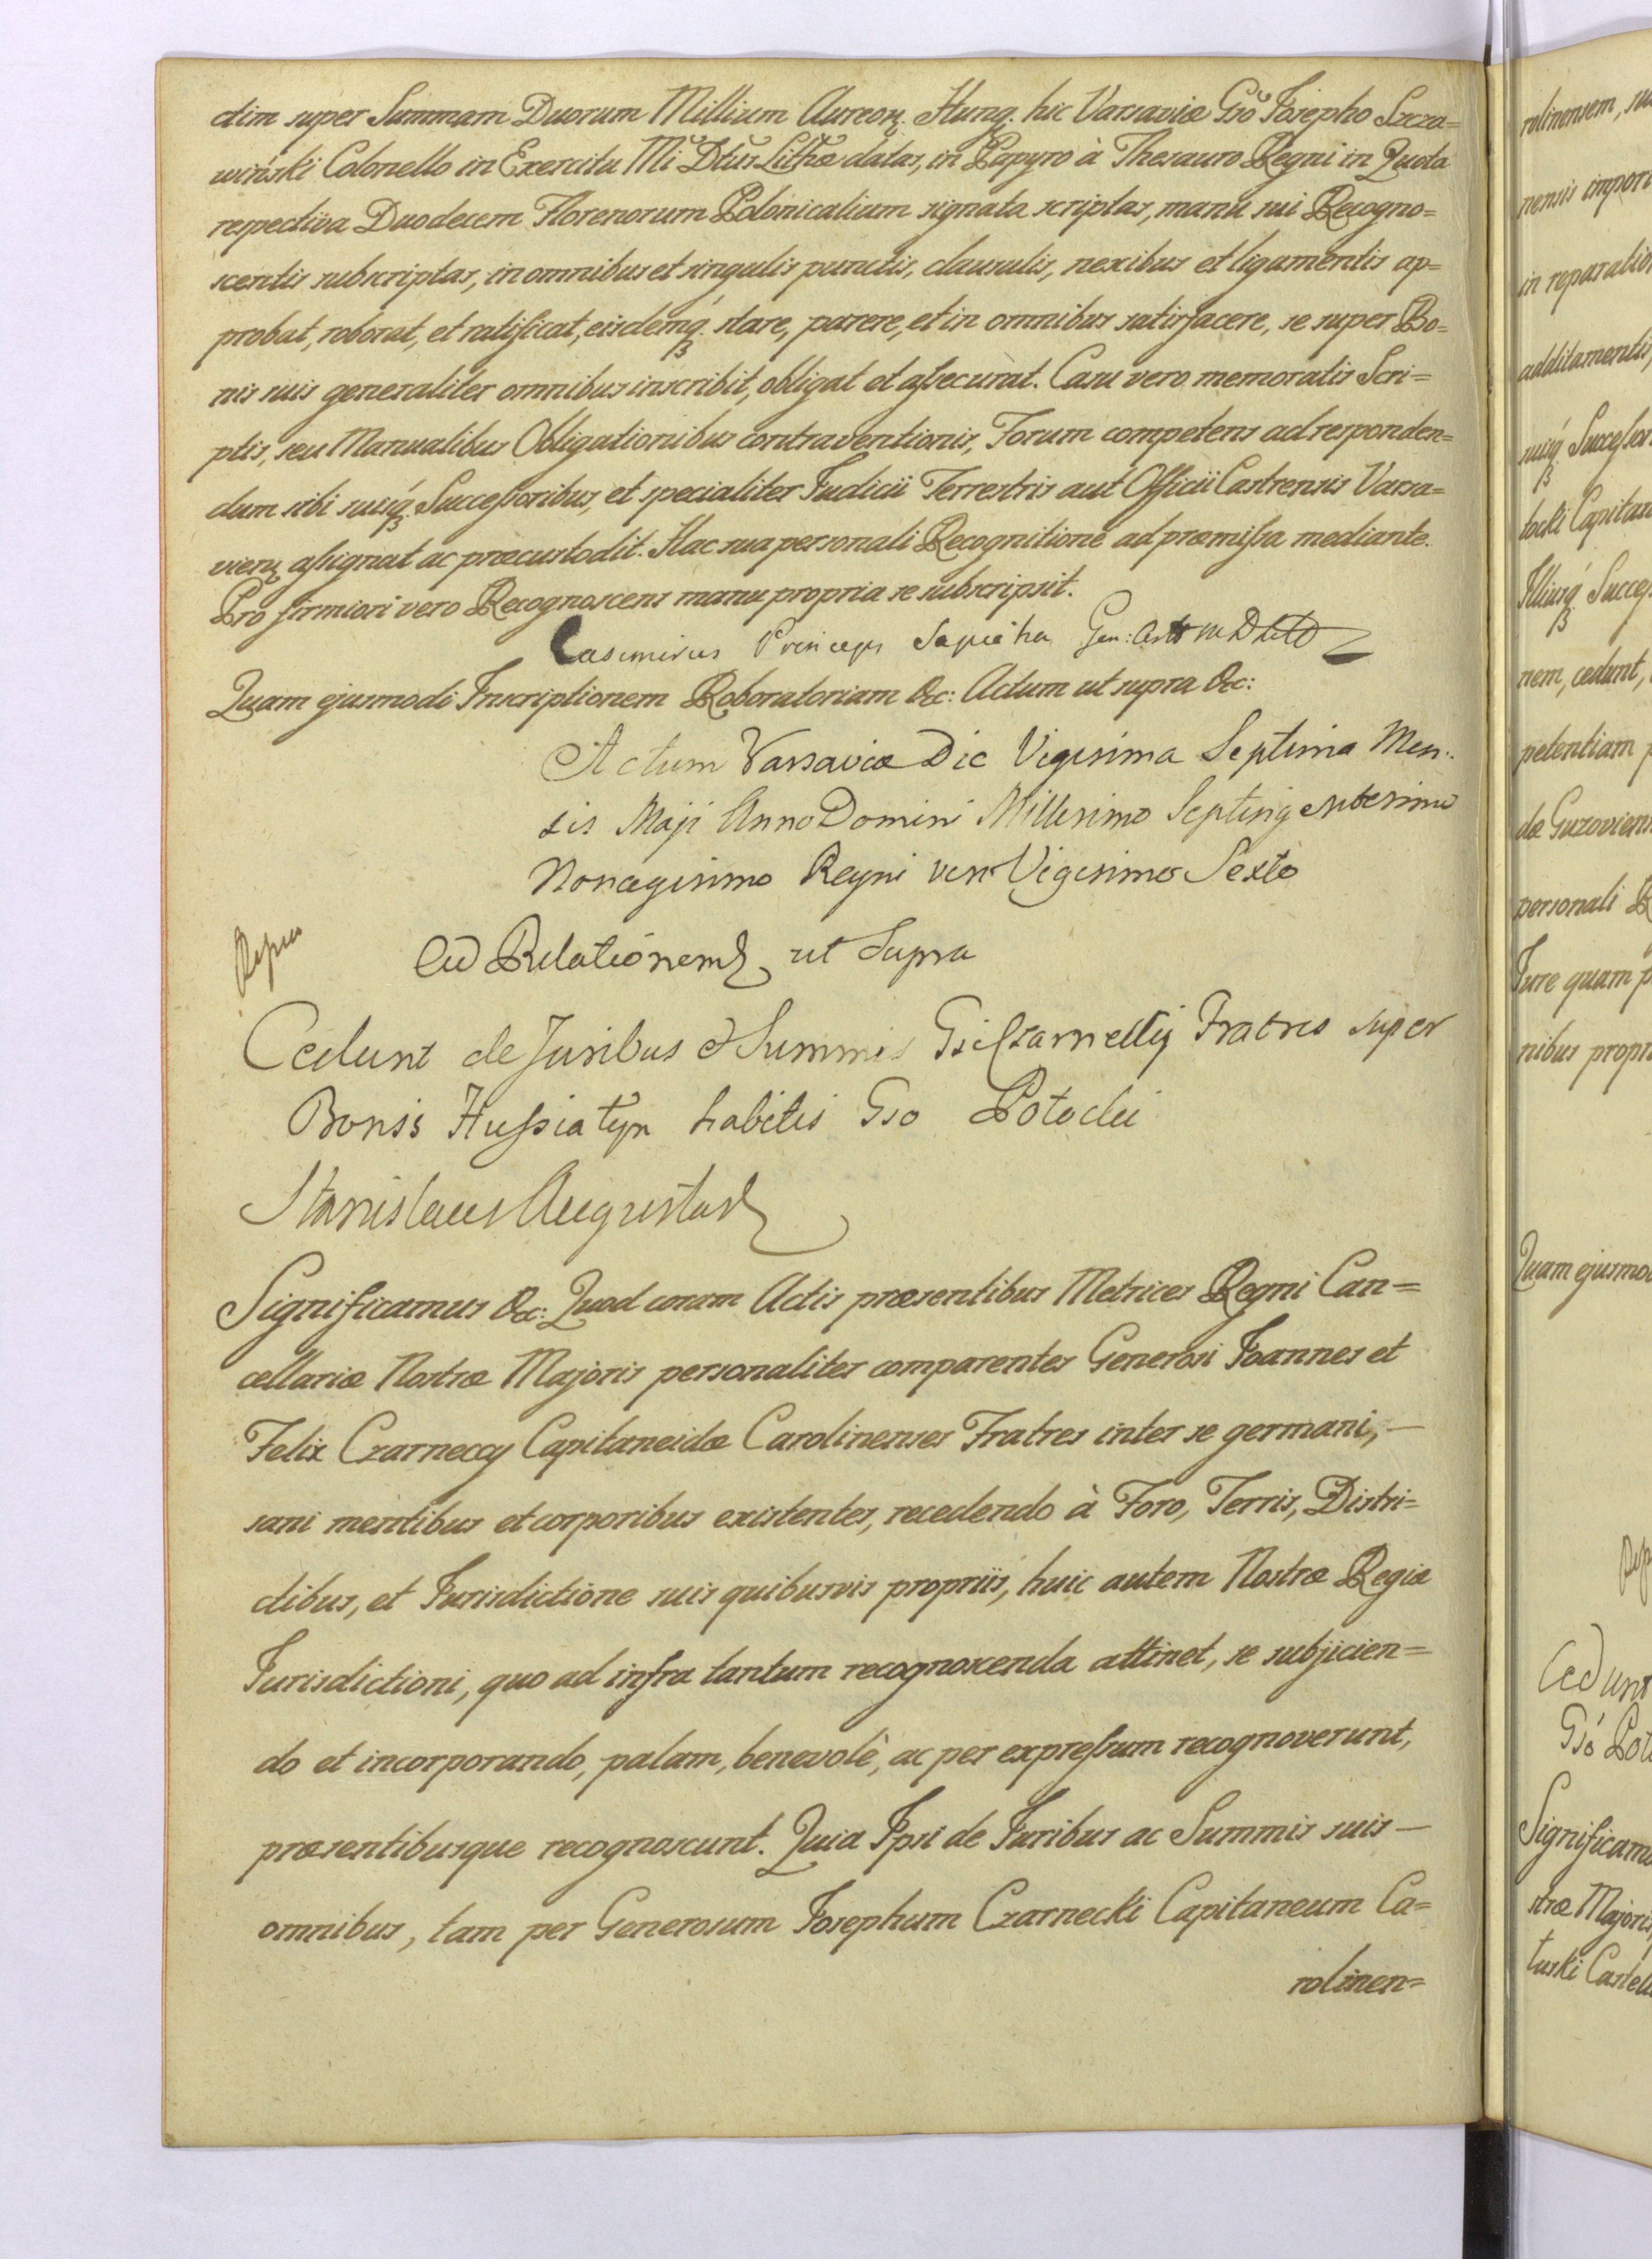 ctim super Summam Duorum Millium Aureorꝝ Hungꝝ hic Varsaviæ Gsō Josepho Szcza=
wiński Colonello in Exercitu Mi Dtūs Lithæ datas, in Papyro à Thesauro Regni in Quota
respectiva Duodecem Florenorum Polonicalium signata scriptas, manu sui Recogno=
scentis subscriptas, in omnibus et singulis punctis, clausulis, nexibus et ligamentis ap=
probat, roborat, et ratificat, eisdemqꝫ stare, parere, et in omnibus satisfacere, se super Bo=
nis suis generaliter omnibus inscribit, obligat et assecurat. Casu vero memoratis Scri=
ptis, seu Manualibus Obligationibus contraventionis, Forum competens ad responden=
dum sibi suisqꝫ Successoribus, et specialiter Judicii Terrestris aut Officii Castrensis Varsa=
vienꝝ assignat ac præcustodit. Hac sua personali Recognitione ad præmissa mediante.
Pro firmiori vero Recognoscens manu propria se subscripsit.
Casimirus Princeps Sapieha Gen: Art
Quam ejusmodi Inscriptionem Roboratoriam &c: Actum ut supra &c:
Actum Varsaviæ Die Vigesima Septima Men:
sis Maji Anno Domini Millesimo Septingentesimo
Nonagesimo Regni vero Vigesimo Sexto
Ad Relationem ut Supra
Cedunt de Juribus & Summis Gsi Czarneccy Fratres super
Bonis Hussiatyn habitis Gso Potocki
Stanislaus Augustus
Significamus &c: Quod coram Actis præsentibus Metrices Regni Can=
cellariæ Nostræ Majoris personaliter comparentes Generosi Joannes et
Felix Czarneccy Capitaneidæ Carolinenses Fratres inter se germani, —
sani mentibus et corporibus existentes, recedendo à Foro, Terris, Distri=
ctibus, et Jurisdictione suis quibusvis propriis, huic autem Nostræ Regiæ
Jurisdictioni, quo ad infra tantum recognoscenda attinet, se subjicien=
do et incorporando, palam, benevolè, ac per expressum recognoverunt,
præsentibusque recognoscunt. Quia Ipsi de Juribus ac Summis suis —
omnibus, tam per Generosum Josephum Czarnecki Capitaneum Ca=
rolinen=
rolinensem,
nensis
in reparation
additamentis,
suisqꝫ Successor
tocki Capitan
Illiusqꝫ Success
nem, cedunt,
petentiam
dæ Guzovien
personali
Jure quam
nibus propri
Quam ejusmod
Cedunt
Gsó Poto
Significamu
stræ Majoris
tuski Castell